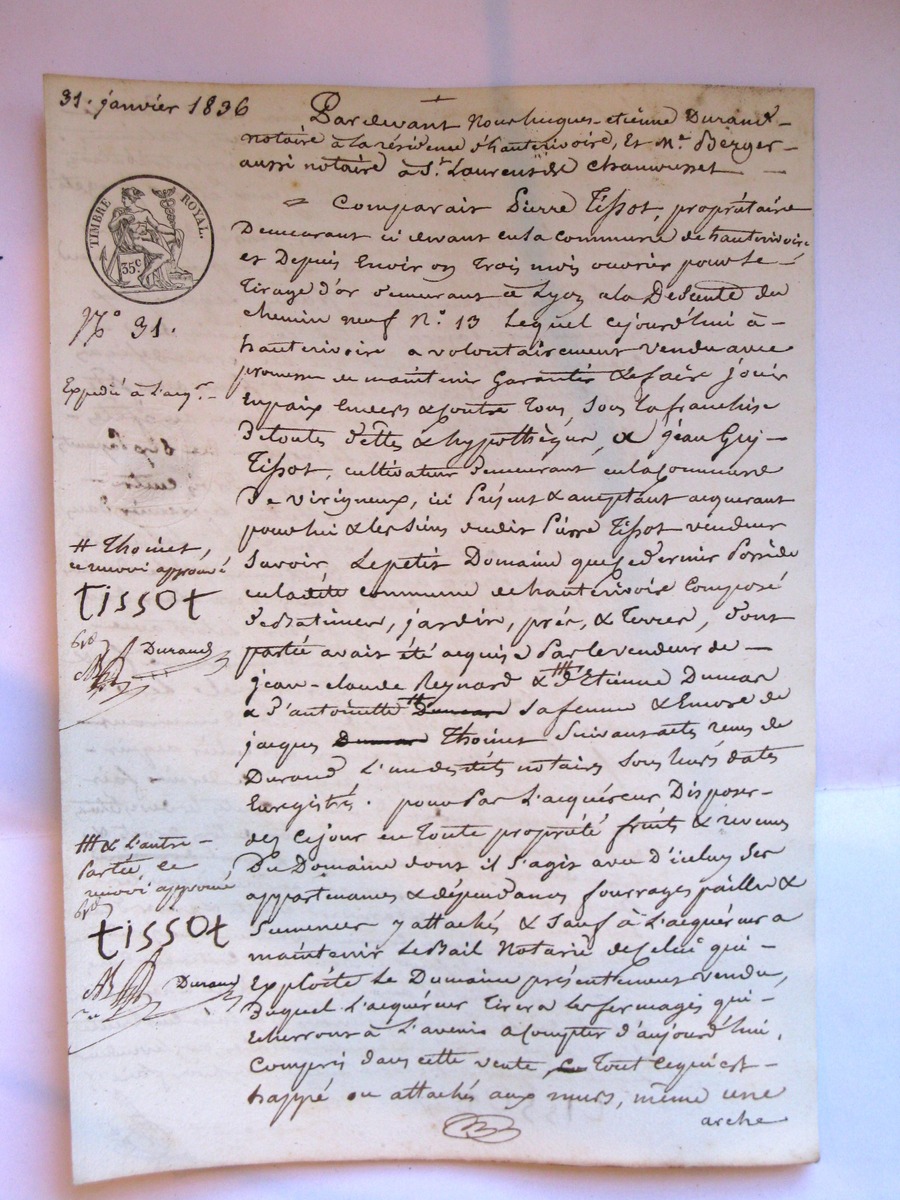 31. janvier 1836
Pardevant Nous hugues-etienne Durand
notaire à la résidence d'hauterivoire, Et Me. Berger
aussi notaire à St. Laurent de Chamousset
TIMBRE ROYAL.
35c
No 31.
Expedié à l'acqr.
= Comparait Pierre Tissot, propriétaire
Demeurant ci devant en la commune de hauterivoire
et Depuis Environ Trois mois ouvrier pour le
Tirage d'or demeurant à Lyon a la Descente du
chemin neuf No. 13 Lequel cejourd'hui à
hauterivoire a volontairement vendu avec
promesse de maintenir Garantir & faire jouir
En paix Envers & Contre Tous, Sous la franchise
De toutes dettes & hypothèques, à jean Guy
Tissot, cultivateur demeurant en la Commune
De virigneux, ici Présent & acceptant acquerant
pour lui & les Siens dudit Pierre Tissot vendeur
Savoir, Le petit Domaine que ce dernier Possède
en ladite commune de hauterivoire Composé
de Batimens, jardin, prés, & Terres, dont
partie avait été acquise Par le vendeur de
jean-claude Reynard & # d'Etienne Dumas
& d'antoinette Dumas Sa femme & Encore de
jacques Dumas Thoinet Suivant actes reçus de
Durand L'un desdits notaires Sous leurs dates
Enregistrés. pour Par L'acquéreur Disposer
dès Cejour en Toute propriété fruits & revenus
Du Domaine dont il S'agit avec D'icelui Ses
appartenances & dépendances fourrages pailles &
Semences y attachés & Sauf à L'acquéreur a
maintenir Le Bail Notarié de Celui qui
Exploite Le Domaine présentement vendu,
Duquel L'acquéreur Tirera les fermages qui
Echerront à L'avenir à Compter d'aujourd'hui.
Compris dans cette vente Tout ce qui est
happé ou attachés aux murs, même une
arche
# Thoinet,
ce renvoi approuvé
tissot
Durand
# & L'autre
Partie ce
renvoi approuvé
tissot
Durand